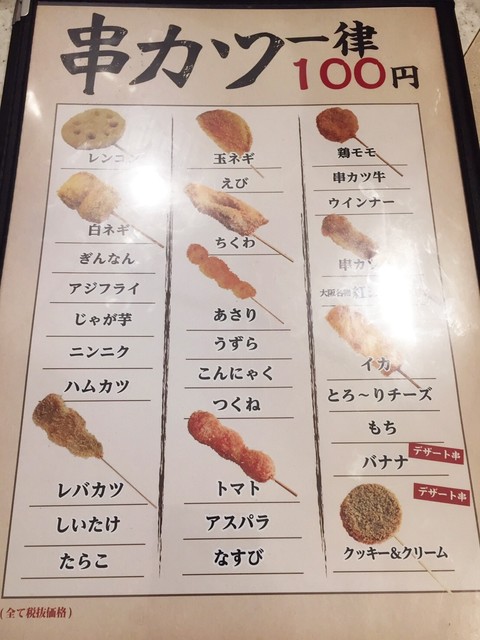 串カツ一律
100円
レンコン
白ネギ
ぎんなん
アジフライ
じゃが芋
ニンニク
ハムカツ
レバカツ
しいたけ
たらこ
玉ネギ
えび
ちくわ
あさり
うずら
こんにゃく
つくね
トマト
アスパラ
なすび
鶏モモ
串カツ牛
ウインナー
串カツ
大阪名物 紅
イカ
とろ〜りチーズ
もち
バナナ
デザート串
デザート串
クッキー&クリーム
(全て税抜価格)